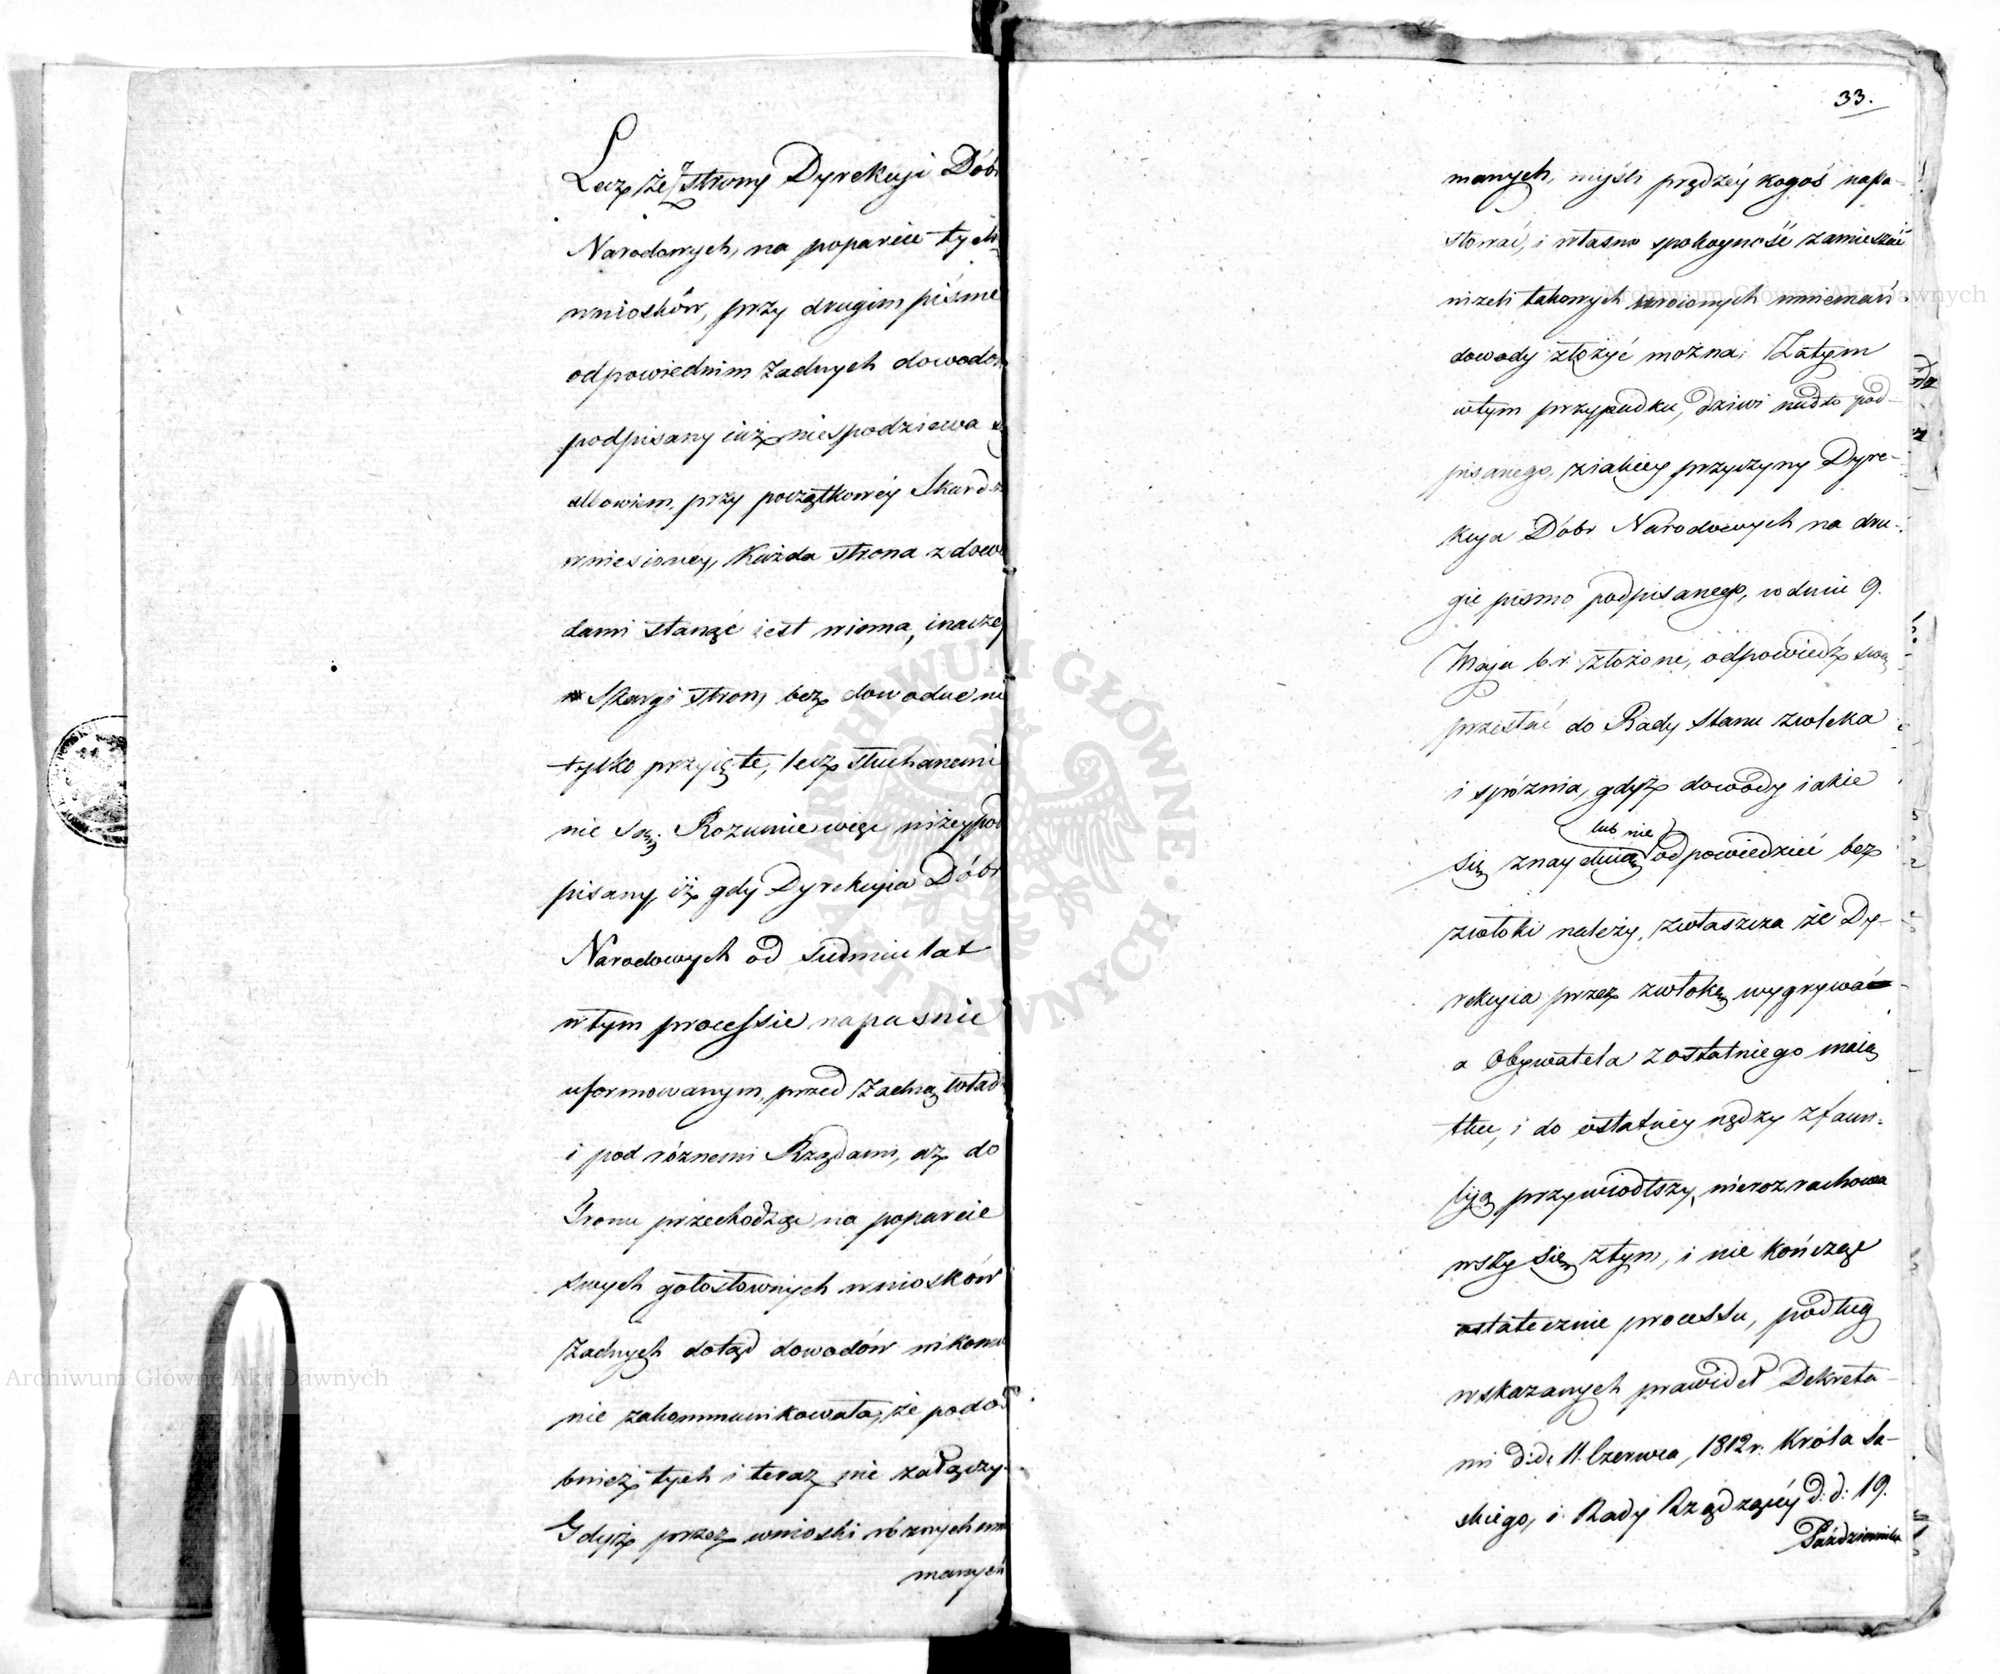 Lecz że z strony Dyrekcyi Dóbr
Narodowych, na poparcie tych
wniosków, przy drugim piśmie
odpowiednim żadnych dowodów
podpisany iuż niespodziewa się
albowiem przy początkowéy Skardze
wniesioney, każda strona z dowo
dami stanąć iest winna, inaczey
Skargi strony bez dowodu nie
tylko przyięte, lecz słuchanemi
nie są; Rozumie więc niżey pod
pisany, iż gdy Dyrekcyia Dóbr
Narodowych od siedmiu lat
w tym processie napaśnie
uformowanym, przed każdą władzą
i pod różnemi Rządami, aż do
Tronu przechodząc na poparcie
swych gołosłownych wniosków
żadnych dotąd dowodów nikomu
nie zakommunikowała, że podo
bnież tych i teraz nie załączy.
Gdyż przez wnioski różnych mnie
manych
33.
manych, myśli prędzéy kogoś napa-
stować, i własną spokoyność zamieszać
niżeli takowych urojonych mniemań
dowody złożyć można; Zatym
w tym przypadku, dziwi nadto pod-
pisanego, z iakiey przyczyny Dyre-
kcya Dóbr Narodowych na dru-
gie pismo podpisanego, w dniu 9.
Maja b. r. złożone, odpowiedź swą
przesłać do Rady Stanu zwleka
i spóźnia, gdyż dowody iakie
lub nie
się znaydują odpowiedzieć bez
zwłoki należy, zwłaszcza że Dy-
rekcyia przez zwłokę wygrywa
a Obywatela z ostatniego maią
tku, i do ostatniey nędzy z fami-
lyą przywiodłszy, nierozrachowa
wszy się z tym, i nie kończąc
ostatecznie processu, podług
wskazanych prawideł Dekreta-
mi d: d: 11. Czerwca, 1812 r. Króla Sa-
skiego, i Rady Rządzącéy d: d: 19.
Października
Archiwum Główne Akt Dawnych
Archiwum Główne Akt Dawnych
ARCHIWUM GŁÓWNE AKT DAWNYCH